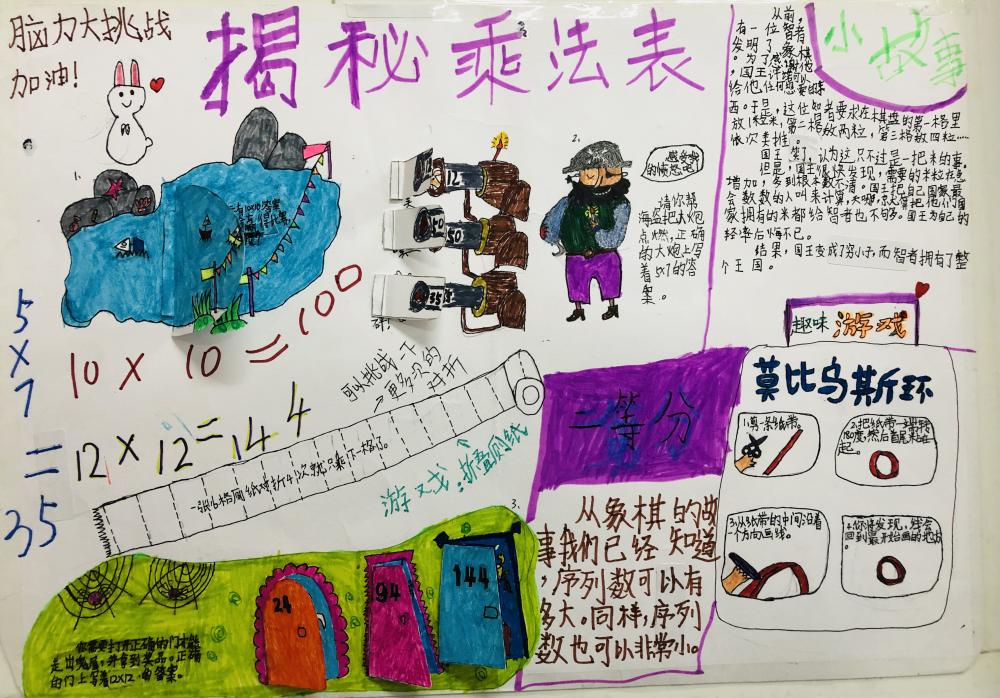 脑力大挑战
加油！
揭秘乘法表
小故事
从前，
有一位智者
发明了象棋
。为了感谢他
，国王许诺可以
给他任何想要的东
西。于是，这位智者要求在棋盘的第一格里
放1粒米，第二格放两粒，第三格放四粒……
依次类推。
国王笑了，认为这只不过是一把米的事。
但是，国王很快发现，需要的米粒在急
增加，多到根本数不清。国王把自己国家最
会数数的人叫来计算，天哪，就算把他们国
家拥有的米都给智者也不够。国王为自己的
轻率后悔不已。
结果，国王变成了穷小子，而智者拥有了整
个王国。
1.
10×10=100
5×7=35
12×12=144
2.
12
50
50
35
感受我
的愤怒吧！
请你帮
海盗把大炮
点燃，正确
的大炮上写
着5×7的答
案。
可以挑战一下
更多次的
对折
一张16格厕纸对折4次就只剩下一格了。
游戏：折叠厕纸
3.
24
94
144
你需要打开正确的门才能
走出鬼屋，并拿到奖品。正确
的门上写着12×12的答案。
二等分
从象棋的故
事我们已经知道
，序列数可以有
多大。同样，序列
数也可以非常小。
趣味游戏
莫比乌斯环
1.剪一条纸带。
2.把纸带一端扭转
180度，然后首尾粘在一
起。
3.从纸带的中间沿着
一个方向画线。
4.你将发现，线会
回到最开始画的地方。